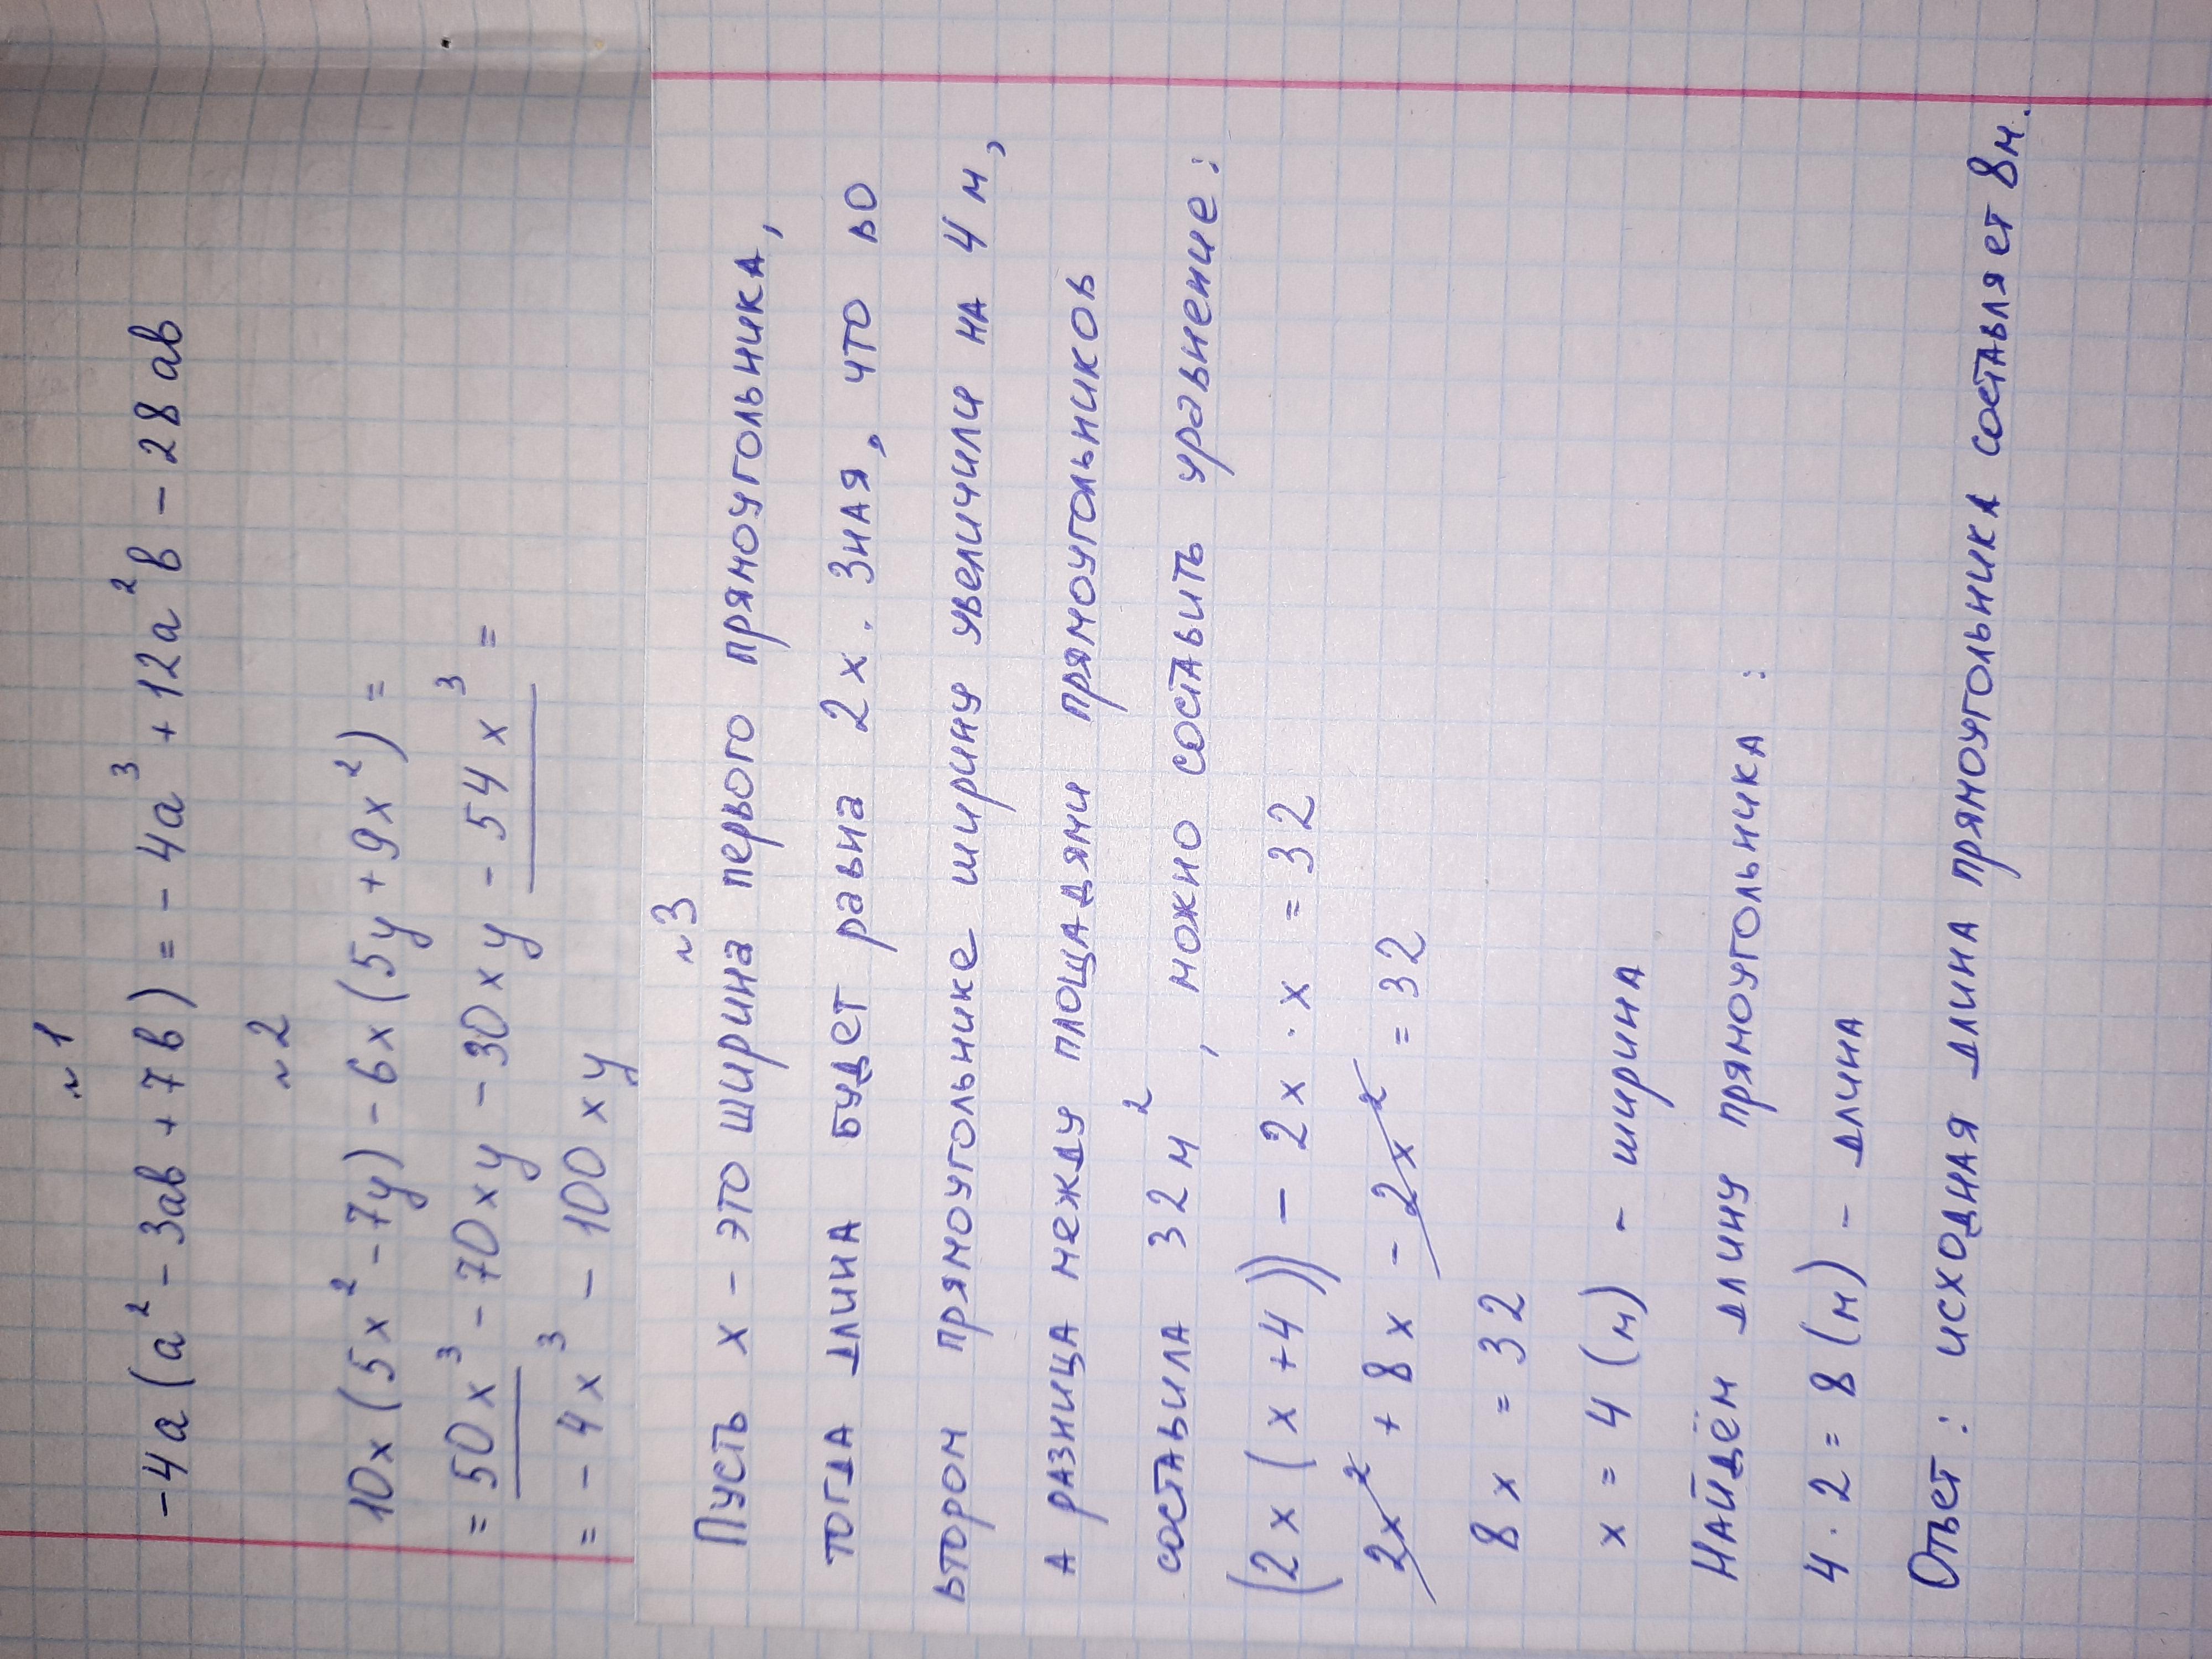 №1
-4a(a² - 3ab + 7b) = -4a³ + 12a²b - 28ab
№2
10x(5x² - 7y) - 6x(5y + 9x²) =
= 50x³ - 70xy - 30xy - 54x³ =
= -4x³ - 100xy
№3
Пусть x - это ширина первого прямоугольника,
тогда длина будет равна 2x. Зная, что во
втором прямоугольнике ширину увеличили на 4 м,
а разница между площадями прямоугольников
составила 32 м², можно составить уравнение:
(2x(x+4)) - 2x · x = 32
2x² + 8x - 2x² = 32
8x = 32
x = 4 (м) - ширина
Найдём длину прямоугольника:
4 · 2 = 8 (м) - длина
Ответ: исходная длина прямоугольника составляет 8м.